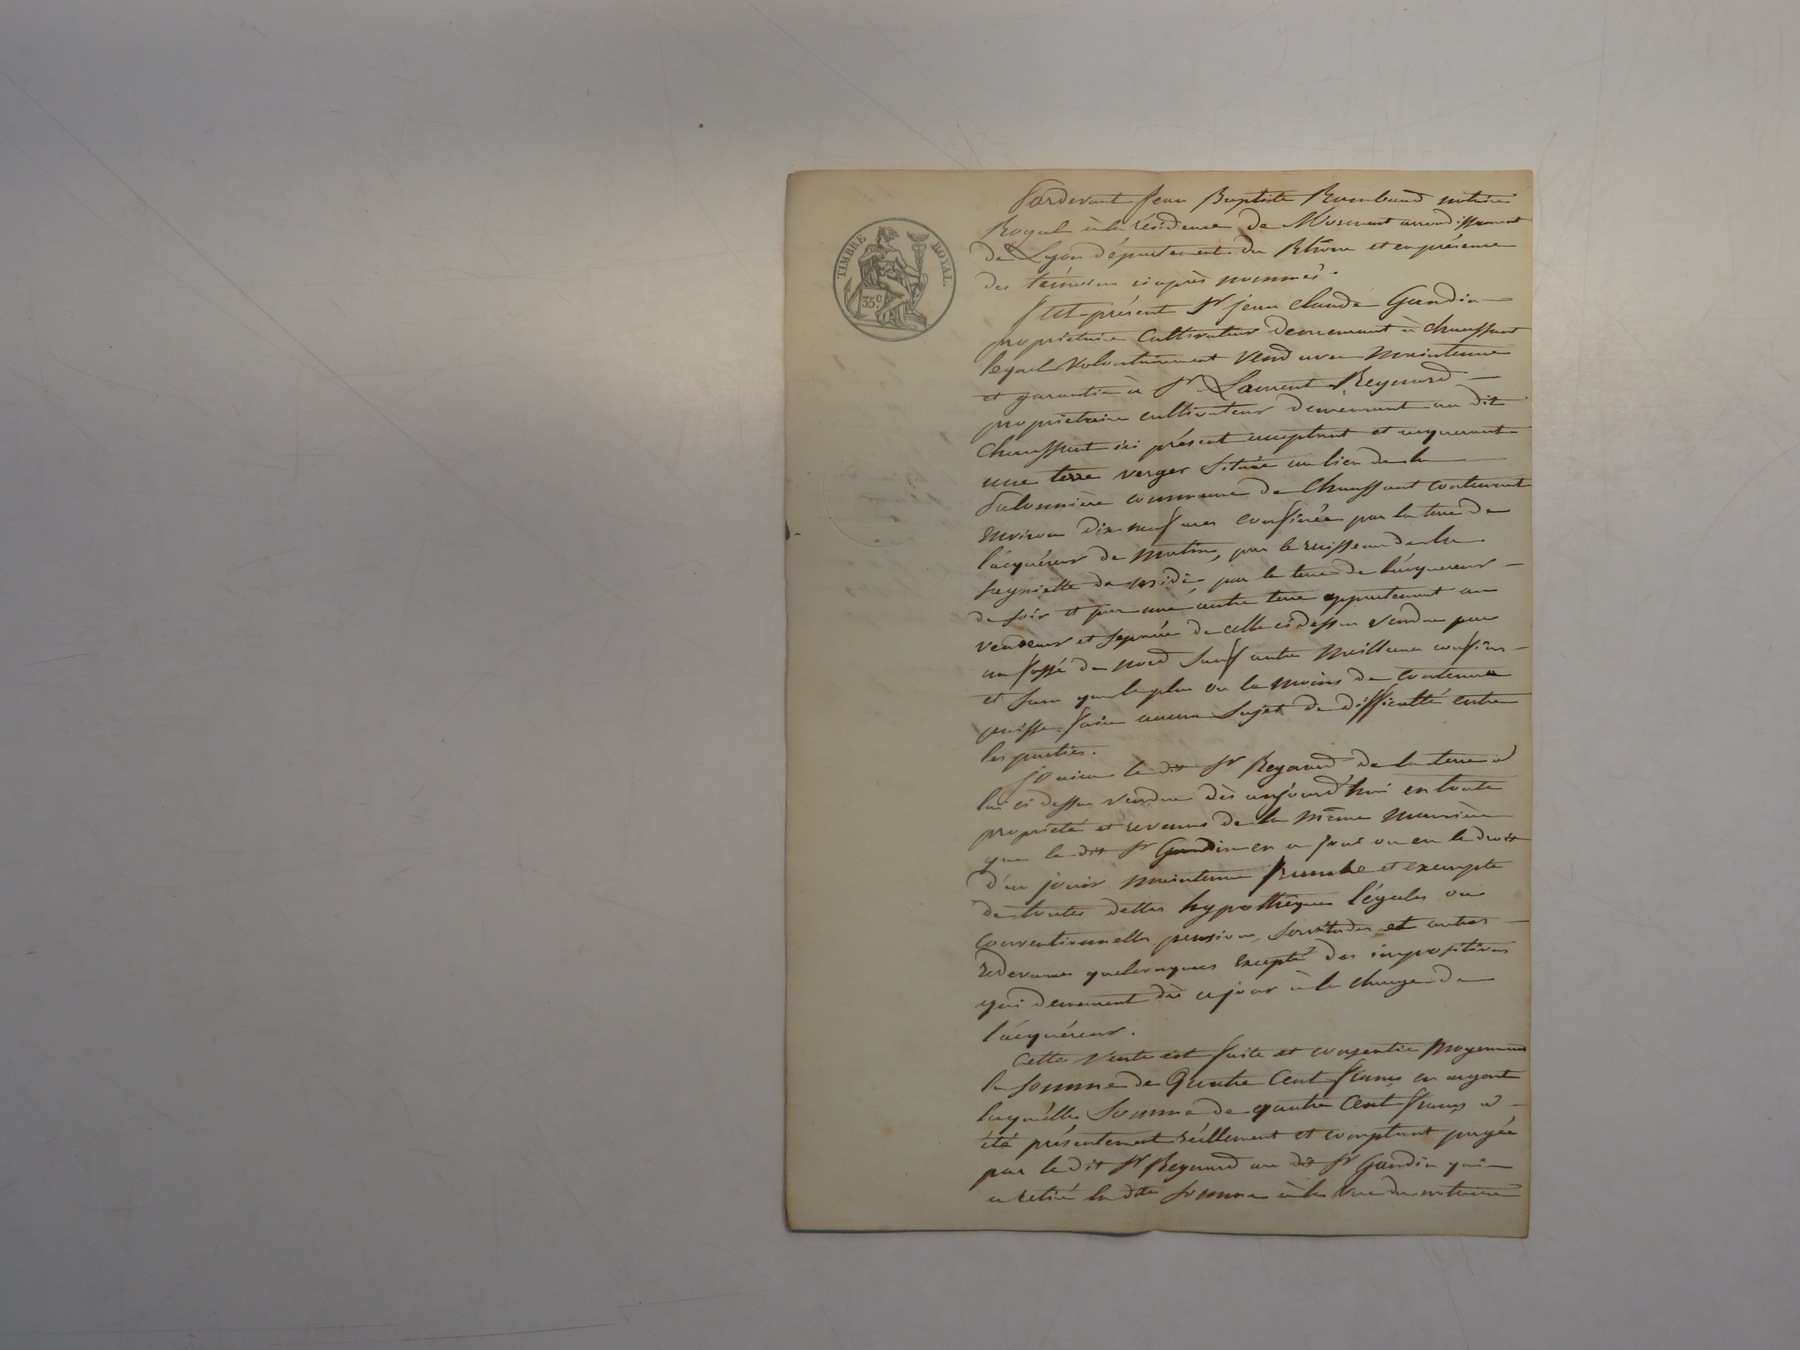 TIMBRE ROYAL.
35c
Pardevant Jean Baptiste Rambaud notaire
Royal à la résidence de Mornant arrondissement
de Lyon département du Rhône et en présence
des témoins ciaprès nommés.
Est présent Sr jean Claude Gandin
propriétaire Cultivateur demeurant à Chaussant
lequel volontairement vend avec maintenue
et garantie à Sr Laurent Reynard
propriétaire cultivateur demeurant au dit
Chaussant ici présent acceptant et acquérant
une terre verger située au lieu de la
commune de Chaussant contenant
environ dix neuf ares confinée par la terre de
l'acquéreur de matin, par le ruisseau de la
de midi par la terre de l'acquéreur
de soir et par une autre terre appartenant au
vendeur et séparée de celle ci dessus vendue par
un fossé de nord sauf autre meilleurs confins
et sans que le plus ou le moins de contenue
puisse faire aucun sujet de difficulté entre
les parties.
Jouira le dit Sr Reynard de la terre à
lui ci dessus vendue dès aujourd'hui en toute
propriété et revenus de la même manière
que le dit Sr Gandin en a joui ou eu le droit
d'en jouir maintenue franche et exempte
de toutes dettes hypothèques légales ou
conventionnelles pensions, servitudes et autres
redevances quelconques excepté des impositions
qui demeurent dès ce jour à la charge de
l'acquéreur.
Cette vente est faite et consentie moyennant
la somme de Quatre Cent francs en argent
laquelle somme de quatre Cent francs a
été présentement réellement et comptant payée
par le dit Sr Reynard au dit Sr Gandin qui
a retiré la dte somme à la vue du notaire